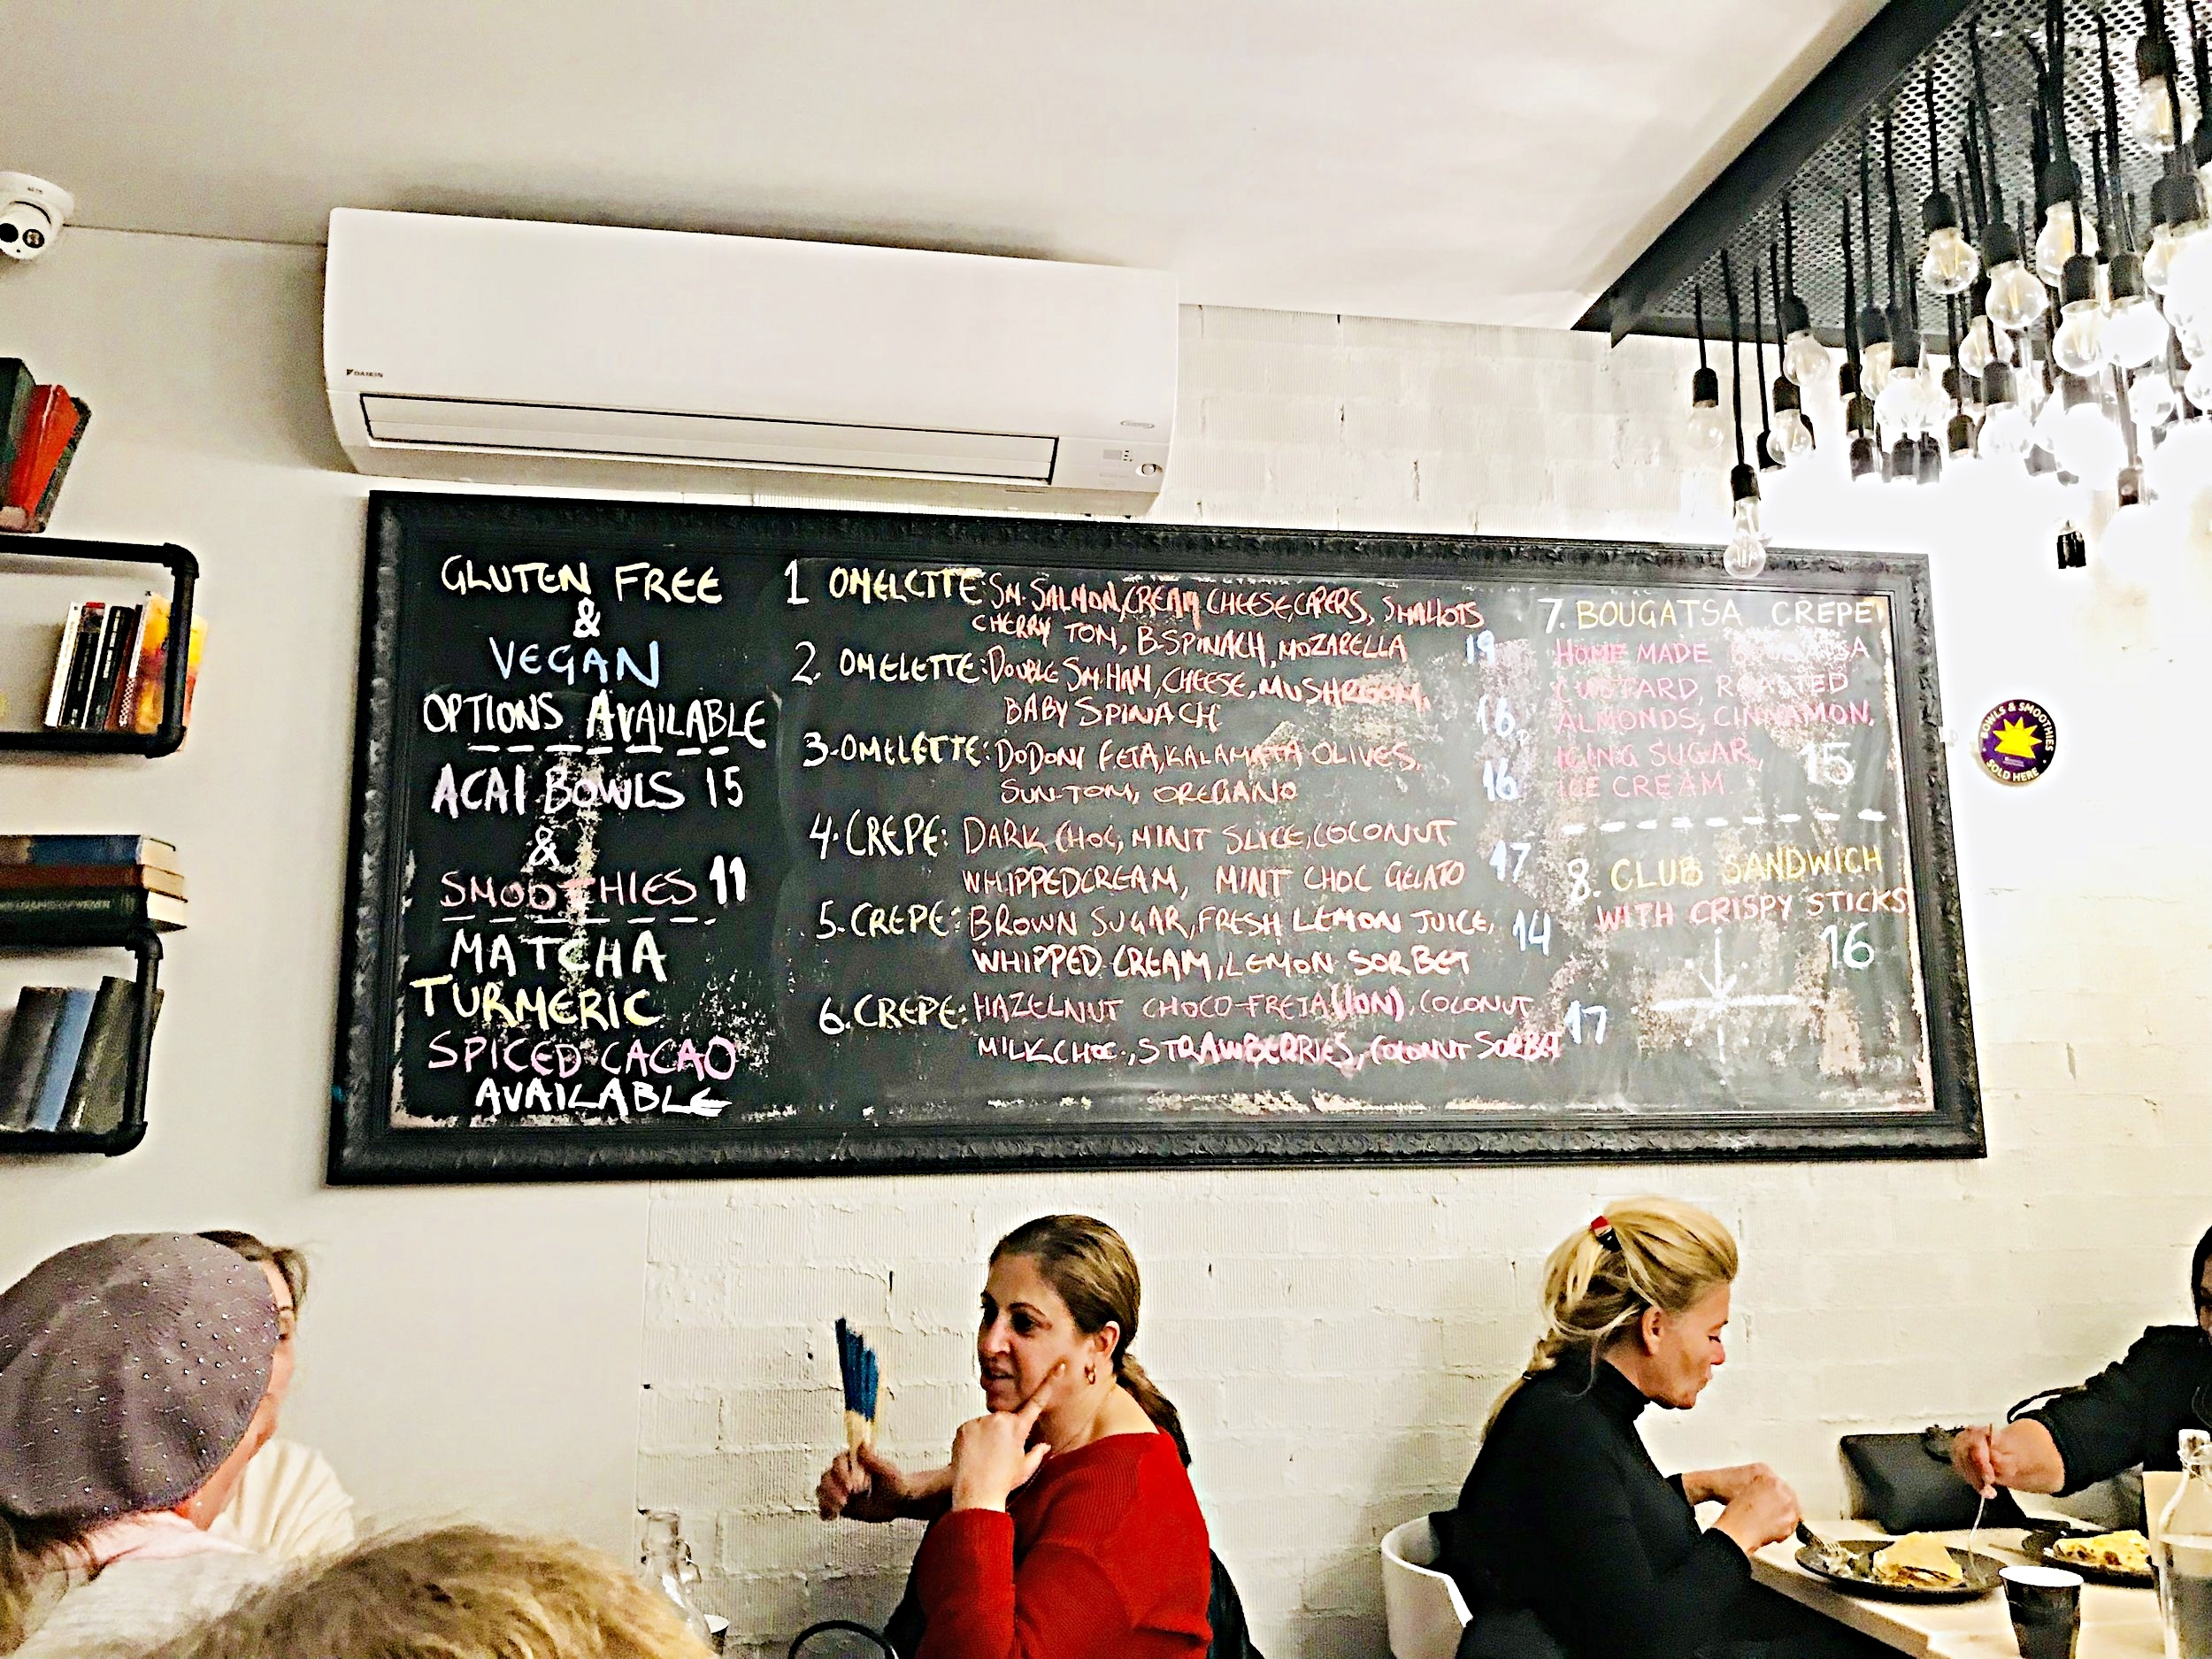 GLUTEN FREE
&
VEGAN
OPTIONS AVAILABLE
ACAI BOWLS 15
&
SMOOTHIES 11
MATCHA
TURMERIC
SPICED CACAO
AVAILABLE
1 OMELETTE: SM. SALMON, CREAM CHEESE, CAPERS, SHALLOTS
CHERRY TOM, B.SPINACH, MOZARELLA 19
2. OMELETTE: DOUBLE SM. HAM, CHEESE, MUSHROOM,
BABY SPINACH 16
3. OMELETTE: DODONI FETA, KALAMATA OLIVES,
SUN-TOM, OREGANO 16
4. CREPE: DARK CHOC, MINT SLICE, COCONUT
WHIPPED CREAM, MINT CHOC GELATO 17
5. CREPE: BROWN SUGAR, FRESH LEMON JUICE, 14
WHIPPED CREAM, LEMON SORBET
6. CREPE: HAZELNUT CHOCO-FRETA (ION), COCONUT 17
MILK CHOC., STRAWBERRIES, COCONUT SORBET
7. BOUGATSA CREPE
HOME MADE BOUGATSA
CUSTARD, ROASTED
ALMONDS, CINNAMON,
ICING SUGAR, 15
ICE CREAM
8. CLUB SANDWICH
WITH CRISPY STICKS
16
DAIKIN
BOWLS & SMOOTHIES
SOLD HERE